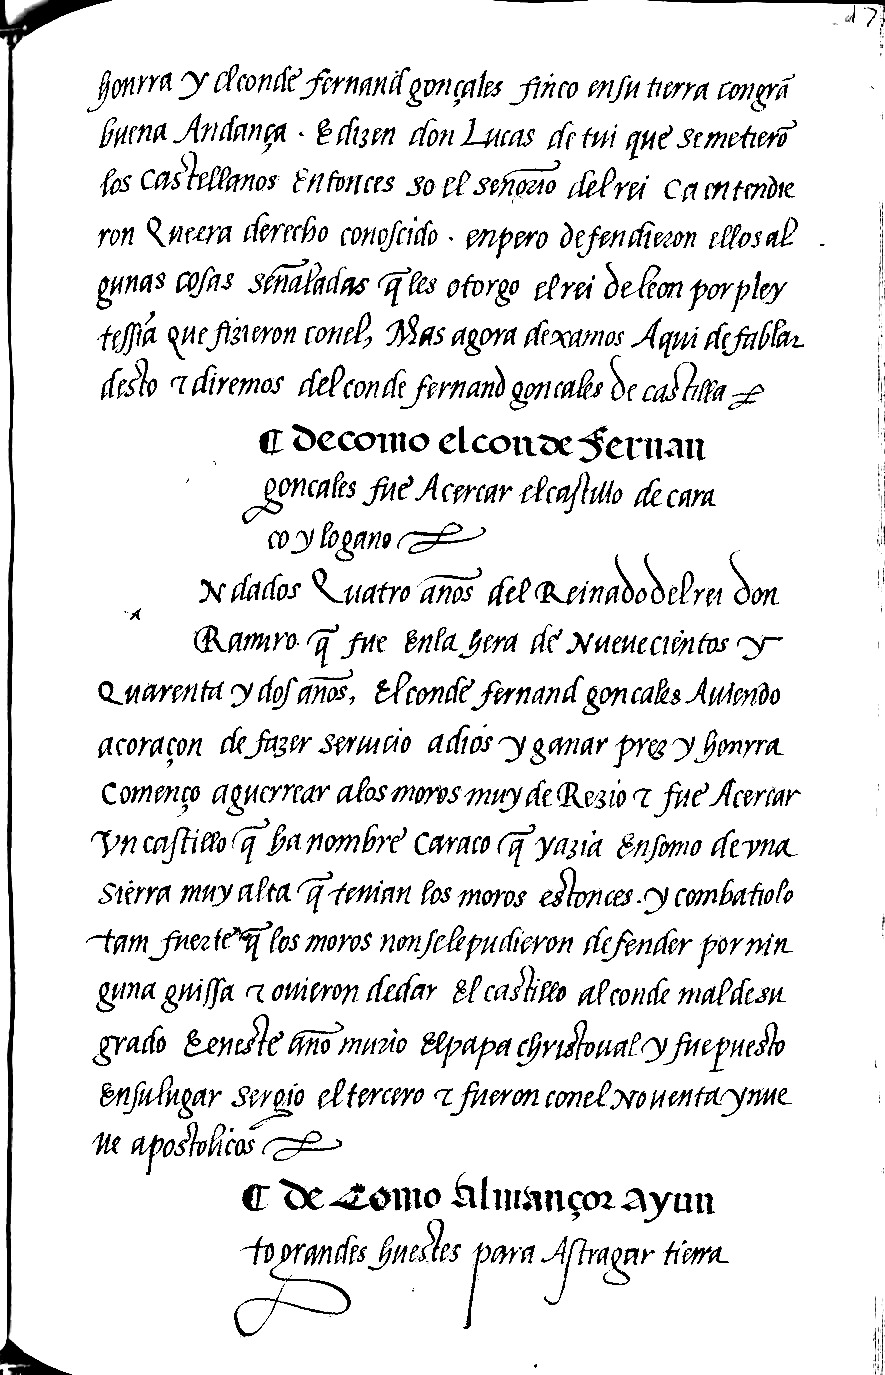 honrra y el conde fernand gonçales finco en su tierra con grã
buena Andança . E dizen don Lucas de tui que se metierõ
los Castellanos Entonces so el señorio del rei Ca entendie
ron Que era derecho conoscido . enpero defendieron ellos al
gunas cosas señaladas q̃ les otorgo el rei de leon por pley
tessia que fizieron con el, Mas agora dexamos Aqui de fablar
desto ⁊ diremos del conde fernand goncales de castilla
¶ de como el conde Fernan
goncales fue A cercar el castillo de cara
co y logano
N dados Quatro años del Reinado del rei don
Ramiro q̃ fue En la hera de Nueuecientos y
Quarenta y dos años, El conde fernand goncales Auiendo
a coraçon de fazer seruicio a dios y ganar prez y honrra
Començo a guerrear a los moros muy de Rezio ⁊ fue A cercar
Vn castillo q̃ ha nombre Caraco q̃ yazia En somo de vna
sierra muy alta q̃ tenian los moros estonces . y combatiolo
tam fuerte q̃ los moros non se le pudieron defender por nin
guna guissa ⁊ ouieron de dar El castillo al conde mal de su
grado E en este año murio El papa christoual y fue puesto
En su lugar sergio el tercero ⁊ fueron con el Nouenta y nue
ue apostolicos
¶ de Como Almançor ayun
to grandes huestes para Astragar tierra